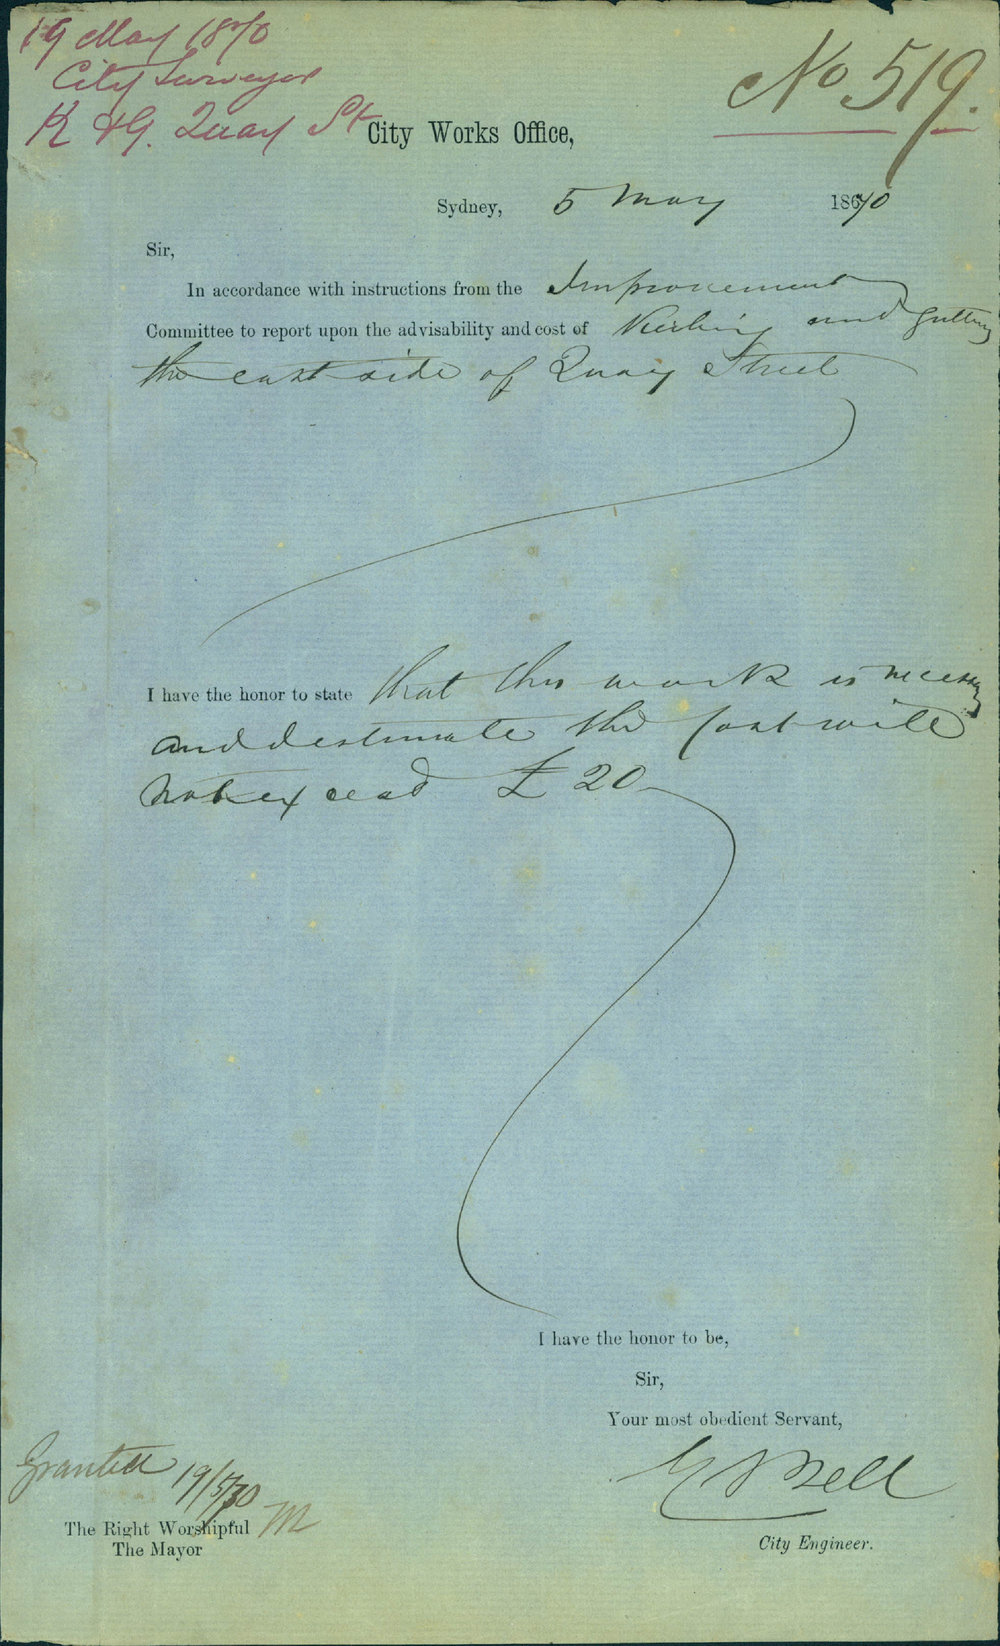 19 May 1870
City Surveyor
K & G. Quay St
No 519.
City Works Office,
Sydney, 5 May 1870
Sir,
In accordance with instructions from the Improvement
Committee to report upon the advisability and cost of Kerbing and guttering
the east side of Quay Street
I have the honor to state that this work is necessary
and estimate the cost will
not exceed £20
I have the honor to be,
Sir,
Your most obedient Servant,
E Bell
City Engineer.
Granted 19/5/70
M
The Right Worshipful
The Mayor